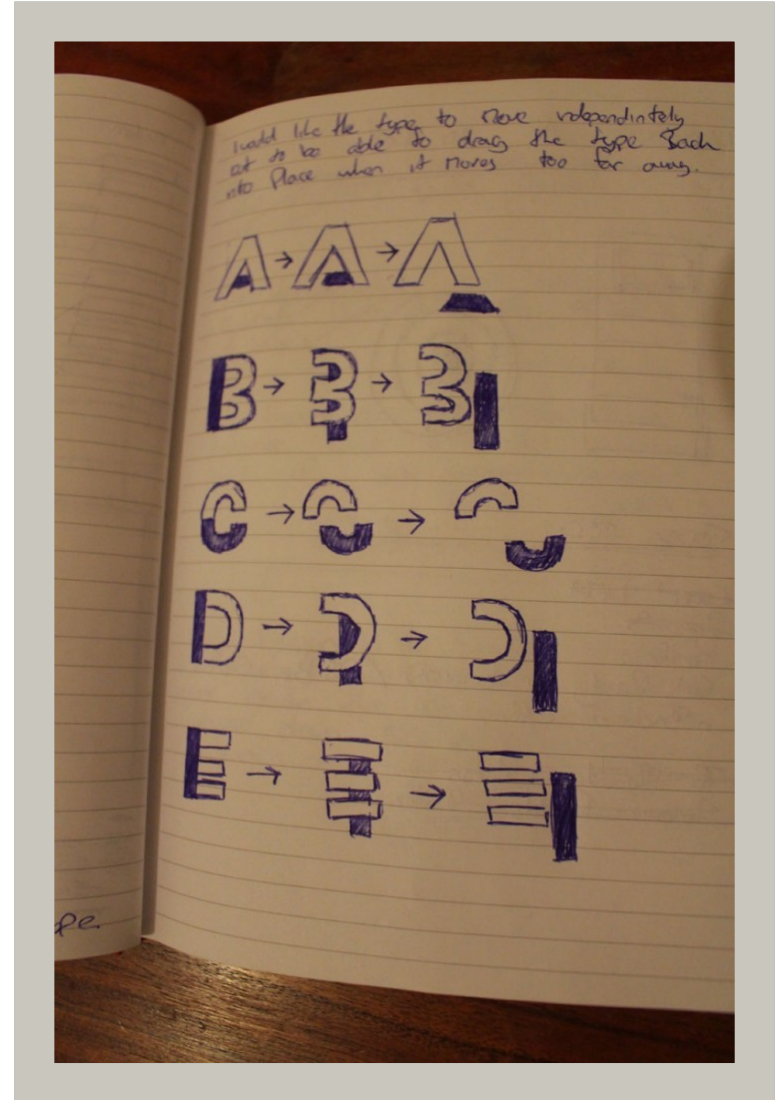 I would like the type to move independintely
but to be able to drag the type back
into Place when it moves too far away.
A → A → A
B → B → B
C → C → C
D → D → D
E → E → E
pe.